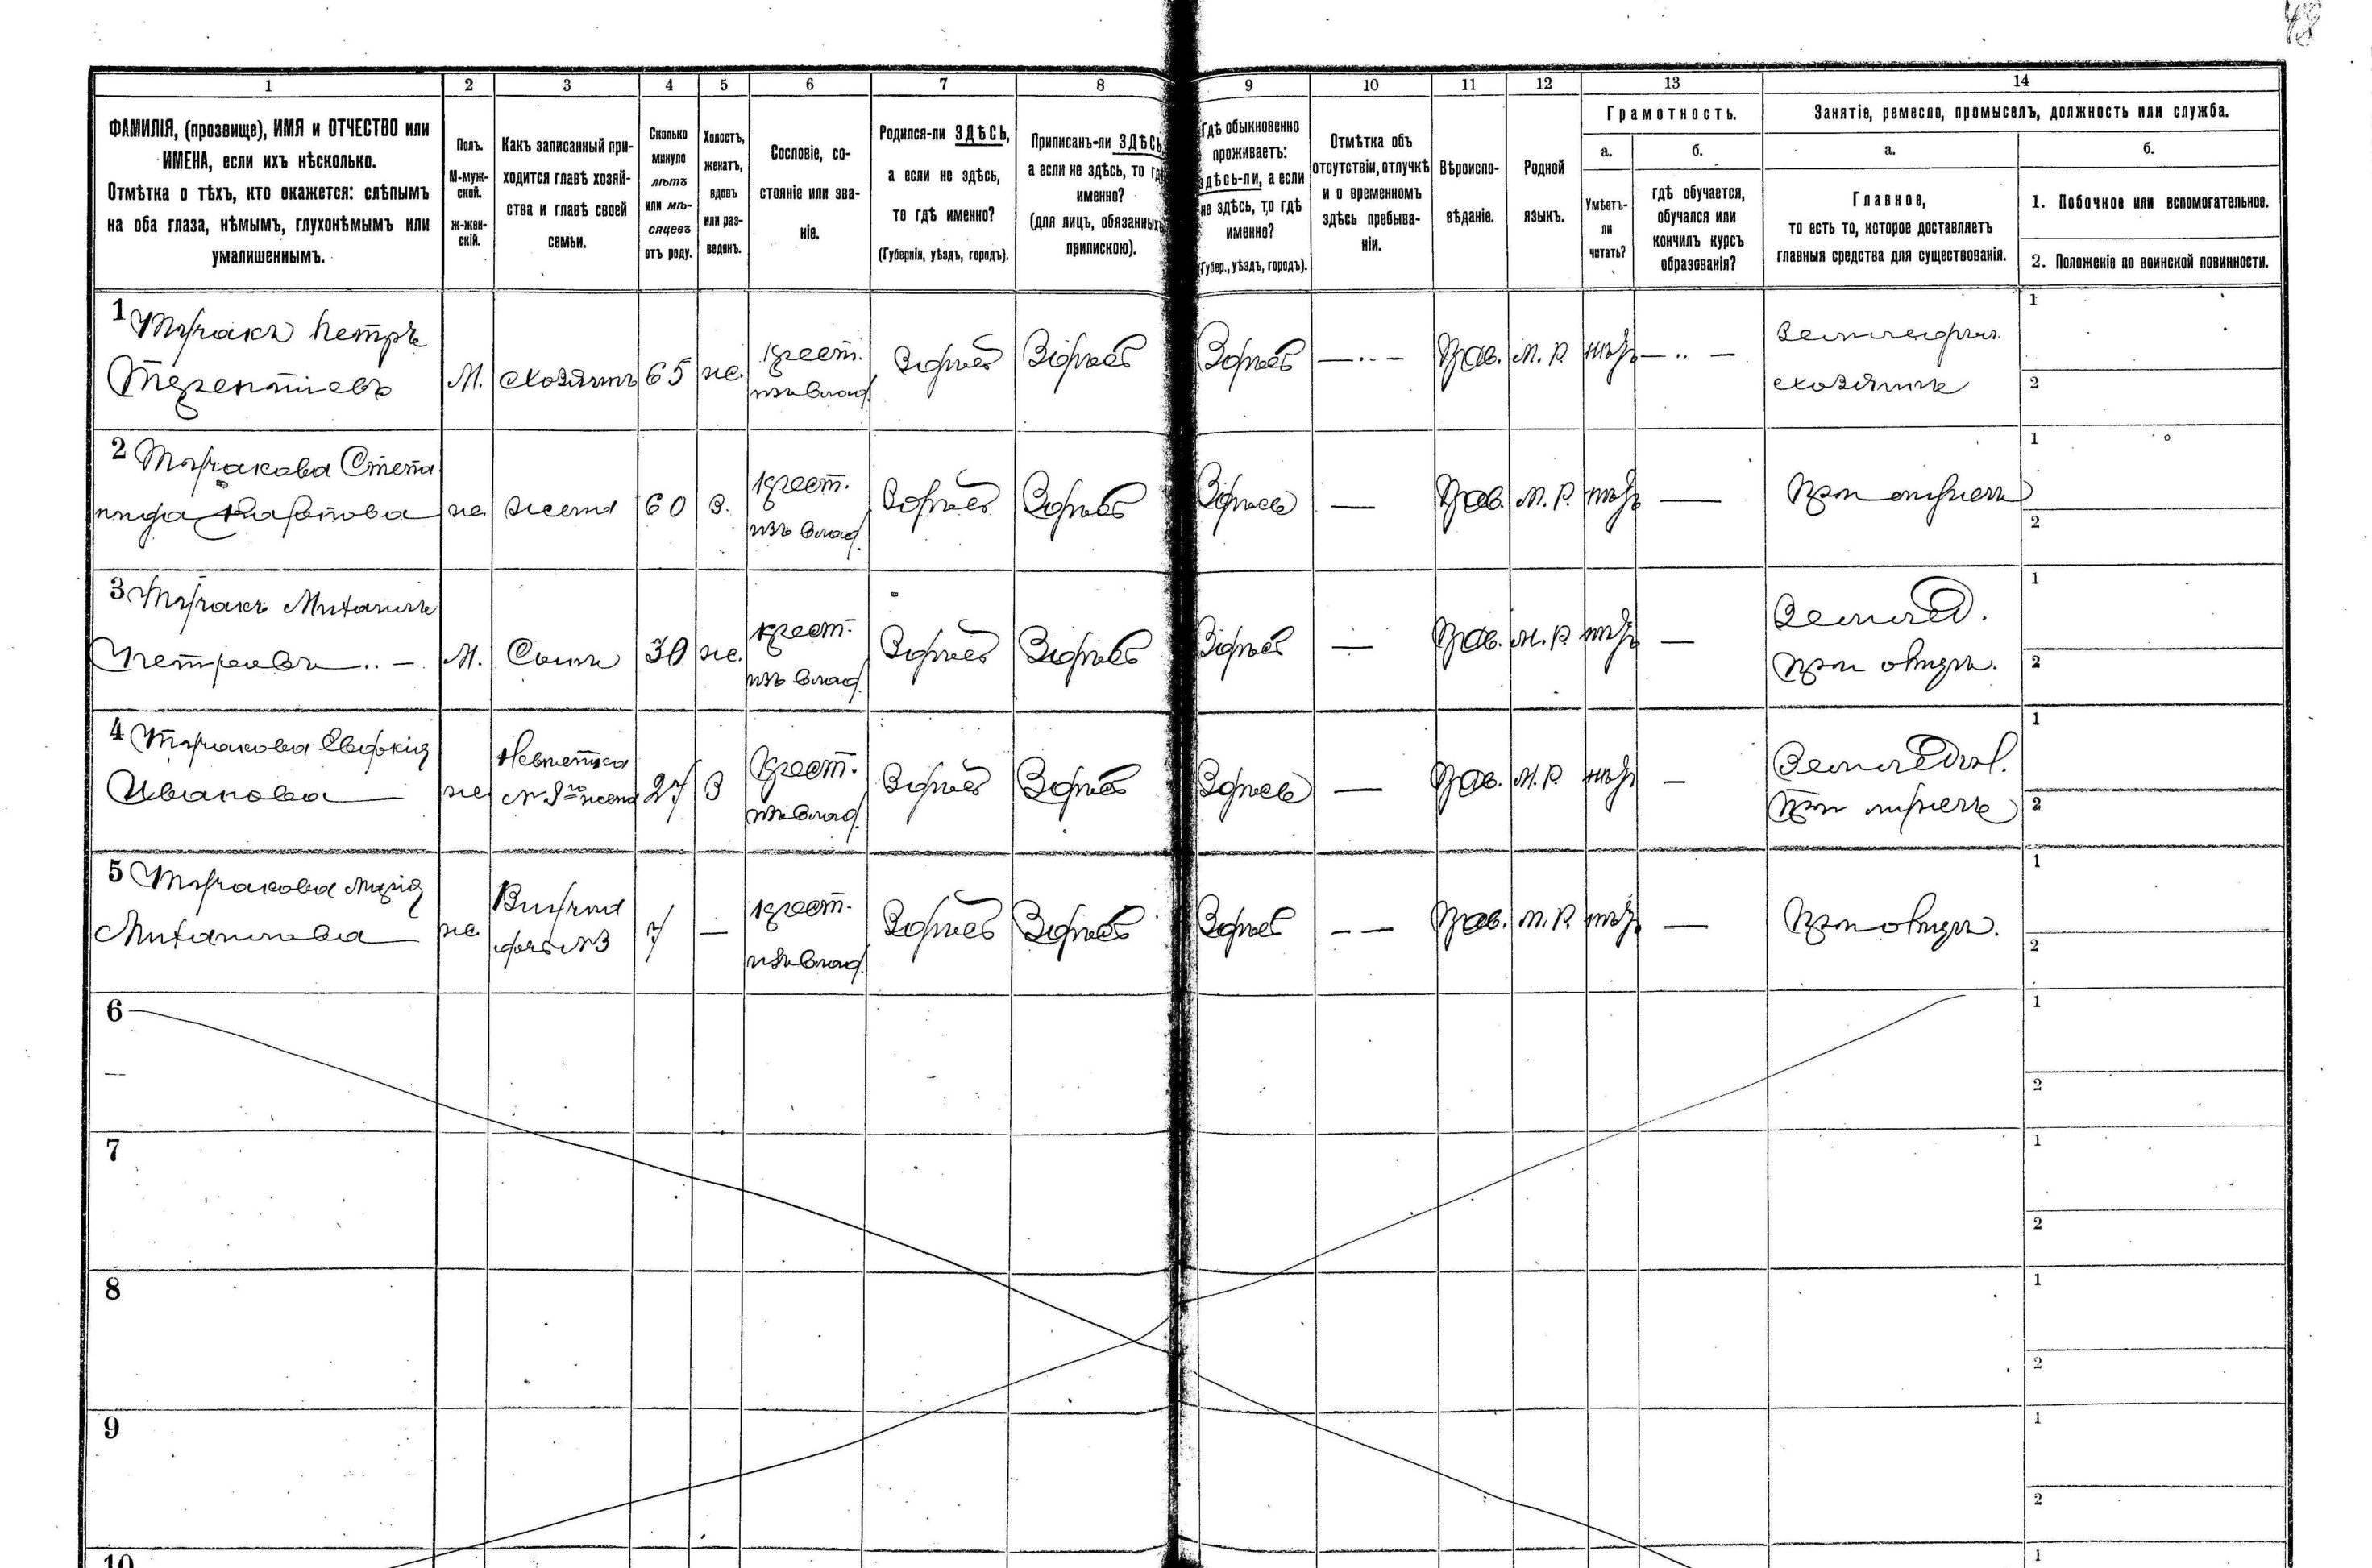 48
1 2 3 4 5 6 7 8 9 10 11 12 13 14
ФАМИЛІЯ, (прозвище), ИМЯ и ОТЧЕСТВО или
ИМЕНА, если ихъ нѣсколько.
Отмѣтка о тѣхъ, кто окажется: слѣпымъ
на оба глаза, нѣмымъ, глухонѣмымъ или
умалишеннымъ.
Полъ.
М-муж-
ской.
Ж-жен-
скій.
Какъ записанный при-
ходится главѣ хозяй-
ства и главѣ своей
семьи.
Сколько
минуло
лѣтъ
или мѣ-
сяцевъ
отъ роду.
Холостъ,
женатъ,
вдовъ
или раз-
веденъ.
Сословіе, со-
стояніе или зва-
ніе.
Родился-ли ЗДѢСЬ,
а если не здѣсь,
то гдѣ именно?
(Губернія, уѣздъ, городъ).
Приписанъ-ли ЗДѢСЬ,
а если не здѣсь, то гдѣ
именно?
(для лицъ, обязанныхъ
припискою).
Гдѣ обыкновенно
проживаетъ:
здѣсь-ли, а если
не здѣсь, то гдѣ
именно?
(Губер., уѣздъ, городъ).
Отмѣтка объ
отсутствіи, отлучкѣ
и о временномъ
здѣсь пребыва-
ніи.
Вѣроиспо-
вѣданіе.
Родной
языкъ.
Грамотность.
а.
Умѣетъ-
ли
читать?
б.
гдѣ обучается,
обучался или
кончилъ курсъ
образованія?
Занятіе, ремесло, промыселъ, должность или служба.
а.
Главное,
то есть то, которое доставляетъ
главныя средства для существованія.
б.
1. Побочное или вспомогательное.
2. Положеніе по воинской повинности.
1 Петръ
Терентіевъ
М. хозяинъ 65 же. крест.
изъ влад.
Здѣсь Здѣсь Здѣсь — Прав. М. Р. нѣтъ —
хозяинъ
1
2
2 Степа
нида Карпова
же жена 60 З. крест.
изъ влад.
Здѣсь Здѣсь Здѣсь — Прав. М. Р. нѣтъ —
При
1
2
3 Михаилъ
Петровъ —
М. Сынъ 30 же. крест.
изъ влад.
Здѣсь Здѣсь Здѣсь — Прав. М. Р. нѣтъ —
Землед.
При отцѣ.
1
2
4 Евдокія
Иванова
же Невѣстка
№ 3го жена
27 З крест.
изъ влад.
Здѣсь Здѣсь Здѣсь — Прав. М. Р. нѣтъ —
При мужѣ
1
2
5 Марія
Михаилова
же Внучка
дочь № 3
7 — крест.
изъ влад.
Здѣсь Здѣсь Здѣсь — — Прав. М. Р. нѣтъ —
При отцѣ.
1
2
6
1
2
7
1
2
8
1
2
9
1
2
10
1